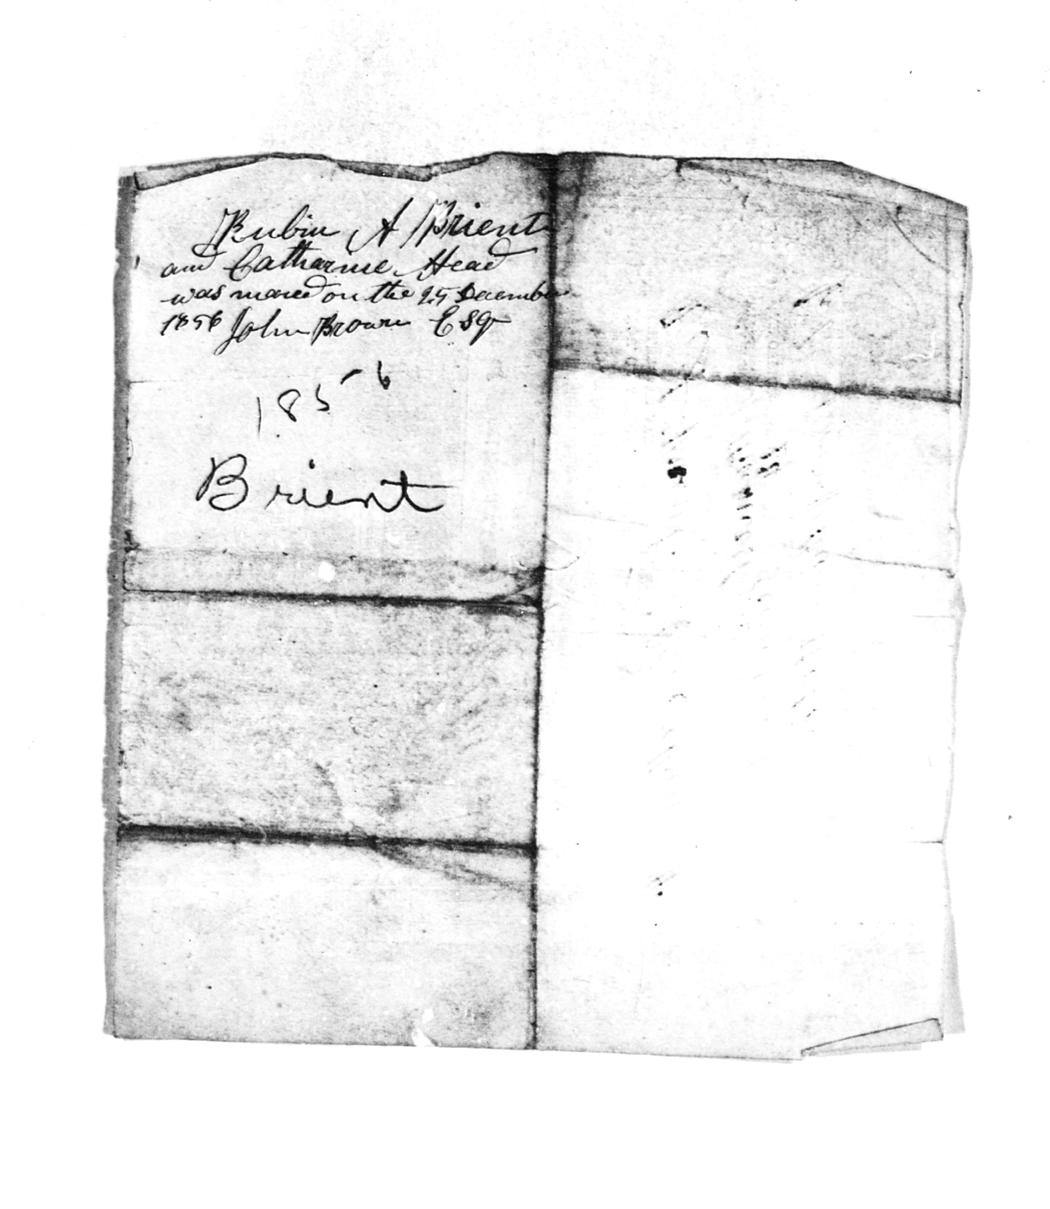 Rubin A Brient
and Catharine Head
was mared on the 25 December
1856 John Brown Esqr
1856
Brient